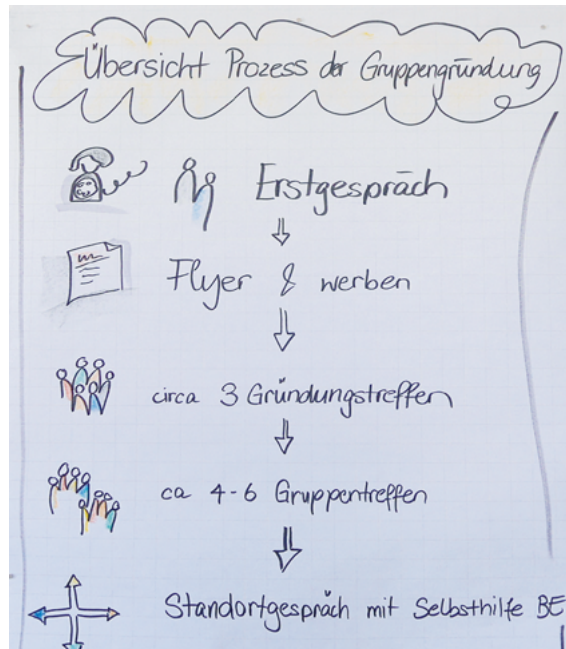 Übersicht Prozess der Gruppengründung
Erstgespräch
Flyer & werben
circa 3 Gründungstreffen
ca 4-6 Gruppentreffen
Standortgespräch mit Selbsthilfe BE